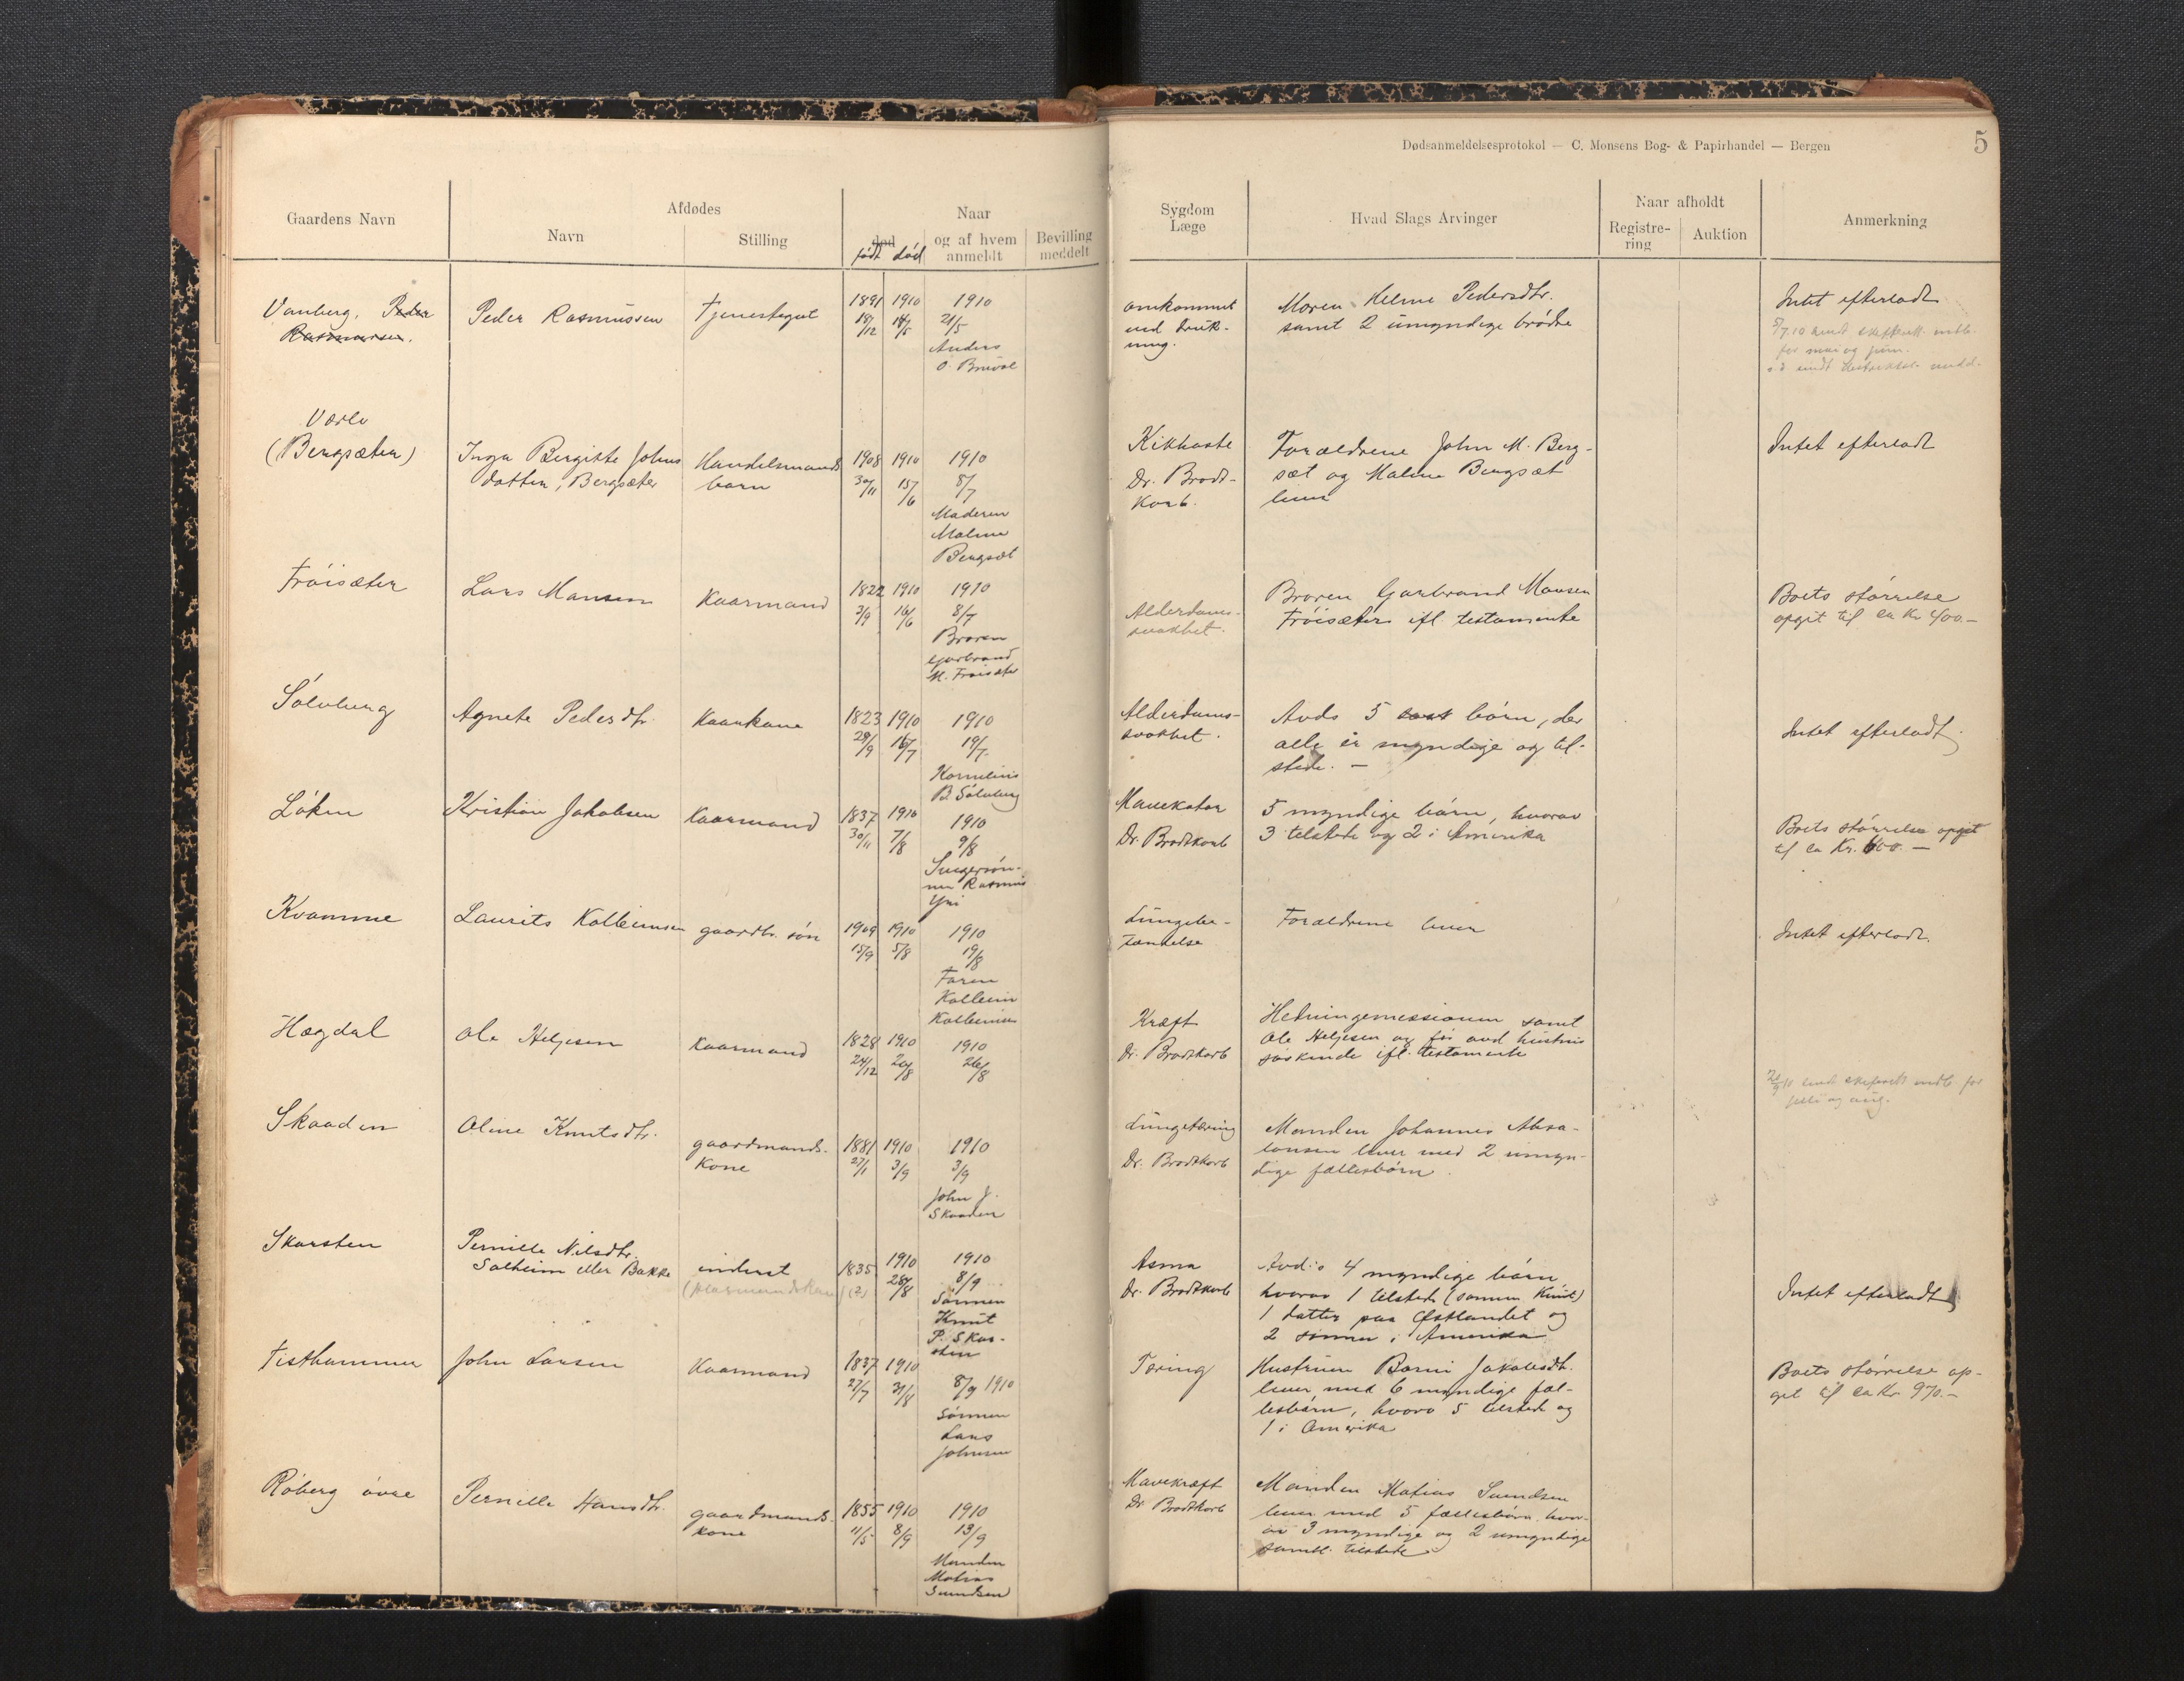 Dødsanmeldelsesprotokol — C. Monsens Bog- & Papirhandel — Bergen
5
Gaardens Navn
Afdødes
Navn
Stilling
Naar
død
født død
og af hvem
anmeldt
Bevilling
meddelt
Sygdom
Læge
Hvad Slags Arvinger
Naar afholdt
Registre-
ring
Auktion
Anmerkning
Vanberg, Peder
Rasmussen.
Peder Rasmussen
Tjenestegut
1891
18/12
1910
14/5
1910
21/5
Anders
O. Bruvol
omkommet
ved druk-
ning.
Moren Helene Pedersdtr.
samt 2 umyndige brødre
Intet efterladt
5/7.10 sendt skifterett. indb.
for mai og juni.
Vorlo
(Bergsæter)
Inga Bergitte Johns
datter, Bergsæter
Handelsmands
barn
1908
30/11
1910
15/6
1910
8/7
Moderen
Maline
Bergsæt
Kikhoste
Dr. Brodt-
korb.
Forældrene John M. Berg-
sæt og Maline Bergsæt
lever
Intet efterladt
Frøisæter
Lars Monsen
Kaarmand
1822
3/9
1910
16/6
1910
8/7
Broren
Garbrand
M. Frøisæter
Alderdoms-
svakhet.
Broren Garbrand Monsen
Frøisæter ifl. testamente
Boets størrelse
opgit til ca Kr 400.-
Sølvberg
Agnete Pedersdtr.
Kaarkone
1823
29/9
1910
16/7
1910
19/7
Kornelius
B. Sølvberg
Alderdoms-
svakhet.
Avds 5 børn, der
alle er myndige og til-
stede. -
Intet efterladt.
Løken
Kristian Jakobsen
Kaarmand
1837
30/11
1910
7/8
1910
9/8
Svigersøn-
nen Rasmus
Yri
Mavekatar
Dr. Brodtkorb
5 myndige børn, hvorav
3 tilstede og 2 i Amerika
Boets størrelse opgit
til ca Kr. 600.-
Kvamme
Laurits Kolbeinsen
gaardbr. søn
1909
15/9
1910
5/8
1910
19/8
Faren
Kolbein
Kolbeinsen
Lungebe-
tændelse
Forældrene lever
Intet efterladt.
Hægdal
Ole Heljesen
Kaarmand
1828
24/12
1910
20/8
1910
26/8
Kræft
Dr. Brodtkorb
Hedningemissionen samt
Ole Heljesen og før avd hustrus
søskende ifl. testamente
sendt skifterett indb. for
juli og aug.
Skaaden
Oline Knutsdtr.
gaardmands-
kone
1881
27/1
1910
3/9
1910
3/9
John J.
Skaaden
Lungetæring
Dr. Brodtkorb
Manden Johannes Absa-
lonsen lever med 2 umyn-
dige fællesbørn.
Skarsten
Pernille Nilsdtr.
Solheim eller Bakke
inderst
1835
(?)
1910
28/8
1910
8/9
Sønnen
Knut
P. Skar-
sten
Asma
Dr. Brodtkorb
Avd:s 4 myndige børn
hvorav 1 tilstede (sønnen Knut)
1 datter paa Østlandet og
2 sønner i Amerika
Intet efterladt
Tisthammer
John Larsen
Kaarmand
1837
27/7
1910
31/8
8/9 1910
Sønnen
Lars
Johnsen
Tæring
Hustruen Borni Jakobsdtr.
lever med 6 myndige fæl-
lesbørn, hvorav 5 tilstede og
1 i Amerika
Boets størrelse op-
git til ca Kr 970.-
Røberg øvre
Pernille Hansdtr.
gaardmands-
kone
1855
11/5
1910
8/9
1910
13/9
Manden
Matias
Sundsen
Mavekræft
Dr Brodtkorb
Manden Matias Sundsen
lever med 5 fællesbørn hvor-
av 3 myndige og 2 umyndige
samtl. tilstede